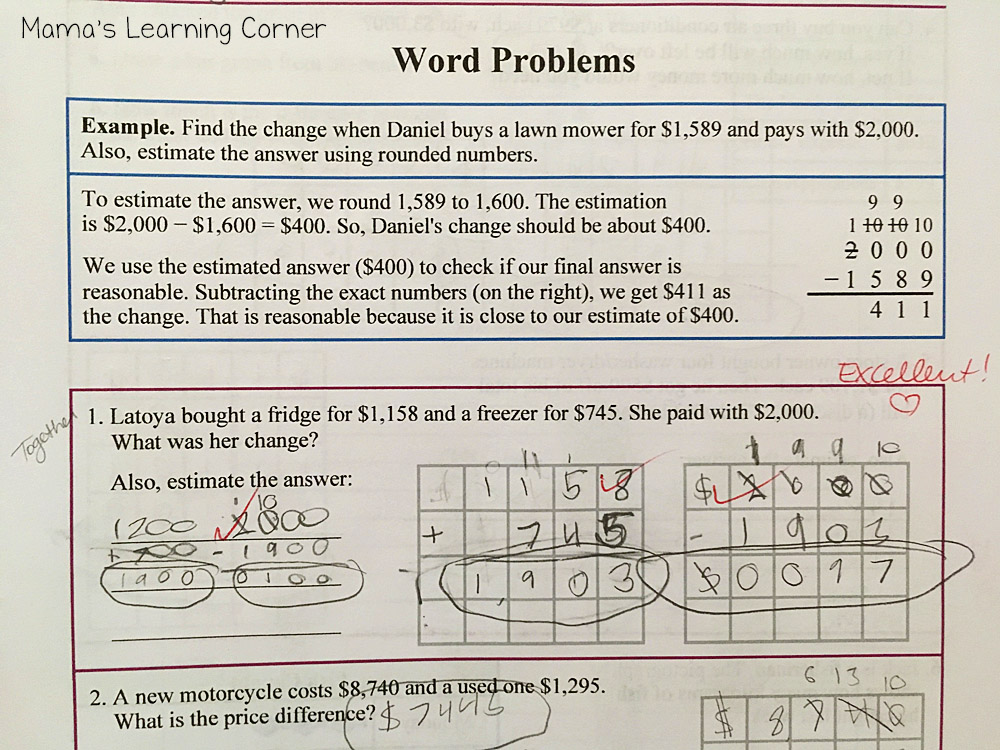 Mama's Learning Corner
Word Problems
Example. Find the change when Daniel buys a lawn mower for $1,589 and pays with $2,000.
Also, estimate the answer using rounded numbers.
To estimate the answer, we round 1,589 to 1,600. The estimation
is $2,000 − $1,600 = $400. So, Daniel's change should be about $400.
We use the estimated answer ($400) to check if our final answer is
reasonable. Subtracting the exact numbers (on the right), we get $411 as
the change. That is reasonable because it is close to our estimate of $400.
9 9
1 10 10 10
2 0 0 0
−1 5 8 9
4 1 1
Excellent!
Together
1. Latoya bought a fridge for $1,158 and a freezer for $745. She paid with $2,000.
What was her change?
Also, estimate the answer:
10
1200 2000
+ 700 - 1900
1900 0100
1 1 5 8
+ 7 4 5
1,903
1 9 9 10
$ 2 0 0 0
- 1 9 0 3
$ 0 0 9 7
2. A new motorcycle costs $8,740 and a used one $1,295.
What is the price difference? $7445
6 13 10
$ 8, 7 4 0